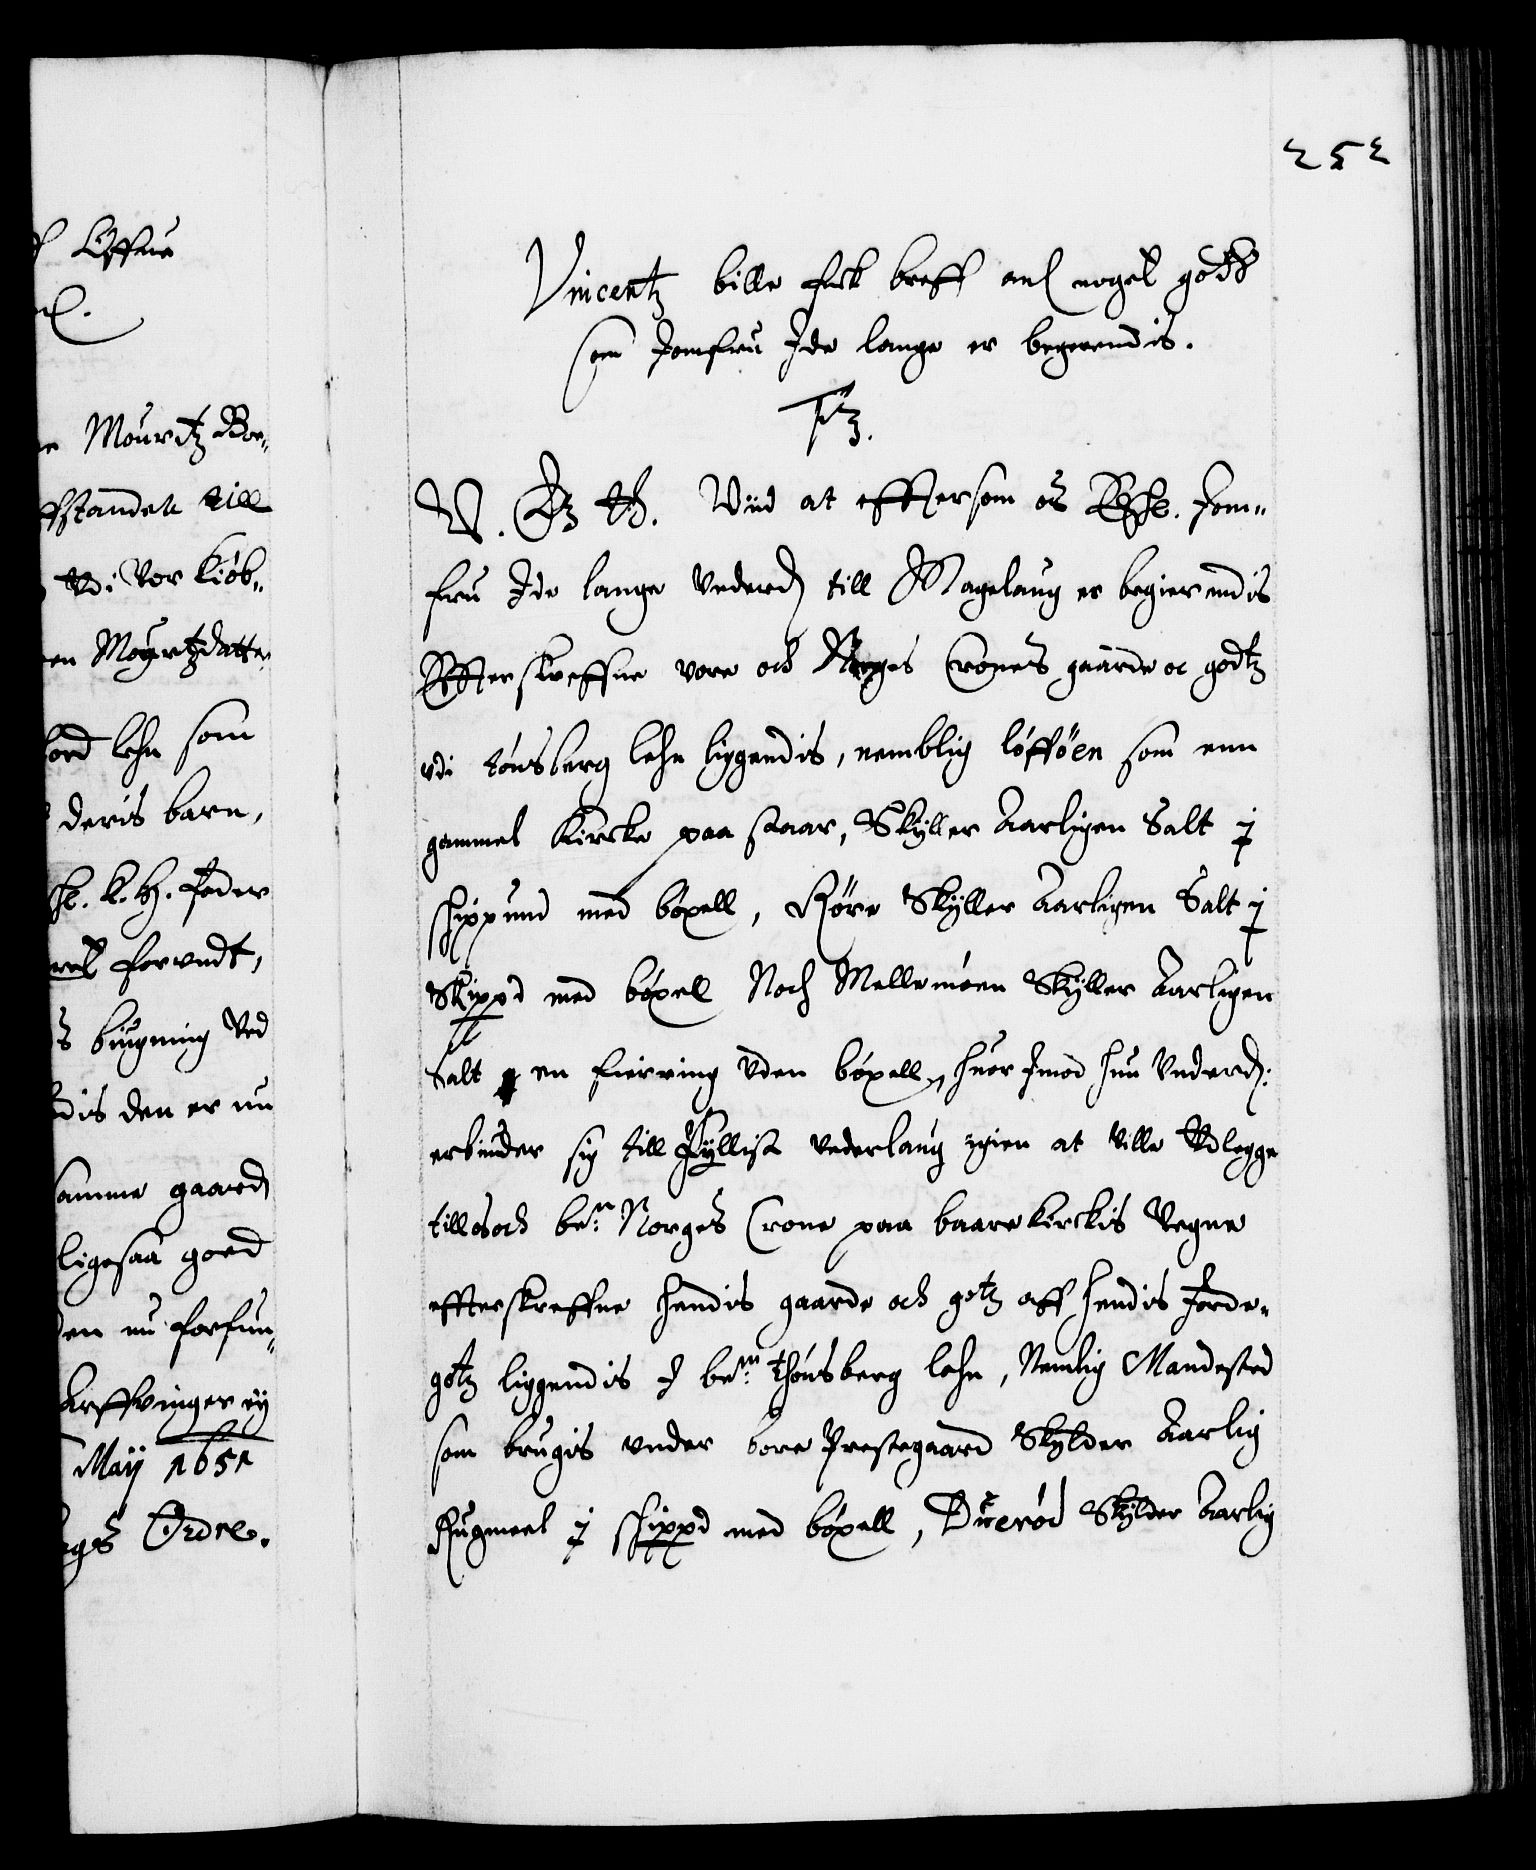 252
Löffue
Mouritz Bor-
standen till
Vdi Vor Kiöb-
en Mouritzdatter
lehn som
deris barn,
K. H. Peder
forundt,
biugning Ved
dis den er nu
samme gaard
ligesaa goed
en nu forfun-
Arffvinger ey
Maÿ 1651
Ordre.
Vincentz bille fick breff anl nogel godtz
som Jomfru Ide lange er begerendis.
F3tz.
W. G. T. Viid at efftersom os Jom-
fru Ide lange Vnderd till Magelaug er begierendis
Effterskreffne vore och Norges Crones gaarde oc godtz
vdi tönsberg lehn liggendis, nemblig löfföen som enn
gammel Kircke paa staar, Skÿller Aarligen Salt j
skippund med böxell, Röre Skÿller Aarligen Salt j
Skippd med böxell Noch Mellemöen Skÿller Aarligen
Salt en fierring vden böxell, huor Jmod hun Vnderd:
erbiuder sig till fÿllist vederlaug igien at Ville Vdlegge
till os och ben: Norges Crone paa baare Kirckis Vegne
effterskreffne hendis gaarde och gotz aff hendis Jorde-
gotz liggendis J bem: thönsberg lehn, Nemlig Mandested
som brugis vnder bore Prestegaard Skylder Aarlig
Rugmeel j skippd med böxell, Dueröd Skÿlder Aarlig